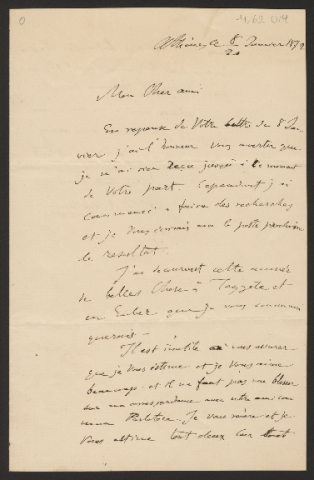 Athènes, le 8/20 Janvier 1879
Mon Cher ami
En reponse de Votre lettre du 8 Jan
vier j'ai l'honneur vous avertir que
je n'ai rien reçu jusqu'à ce moment
de Votre part. Cependant j'ai
commencé a faire des recherches
et je Vous écrirais par la poste prochaine
le resultat.
J'ai decouvert cette année
de belles Choses à Taygete et
en Eubee que je vous
Il est inutile vous assurer
que je Vous estime et je Vous aime
beaucoup. et il ne faut pas me blamer
sur ma correspondance avec notre ami com
mun. Je vous aime et je
Vous estime tout deux